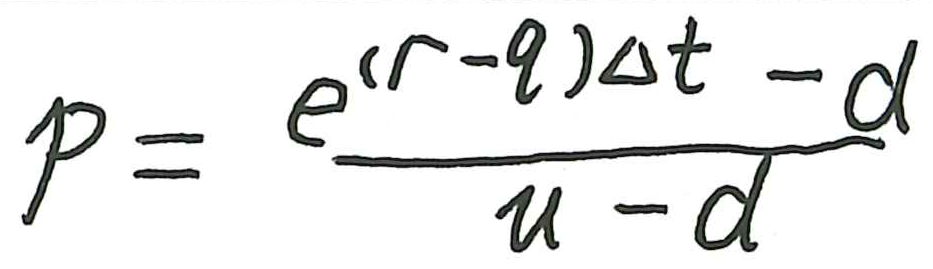 p = \frac{e^{(r-q)\Delta t} - d}{u - d}